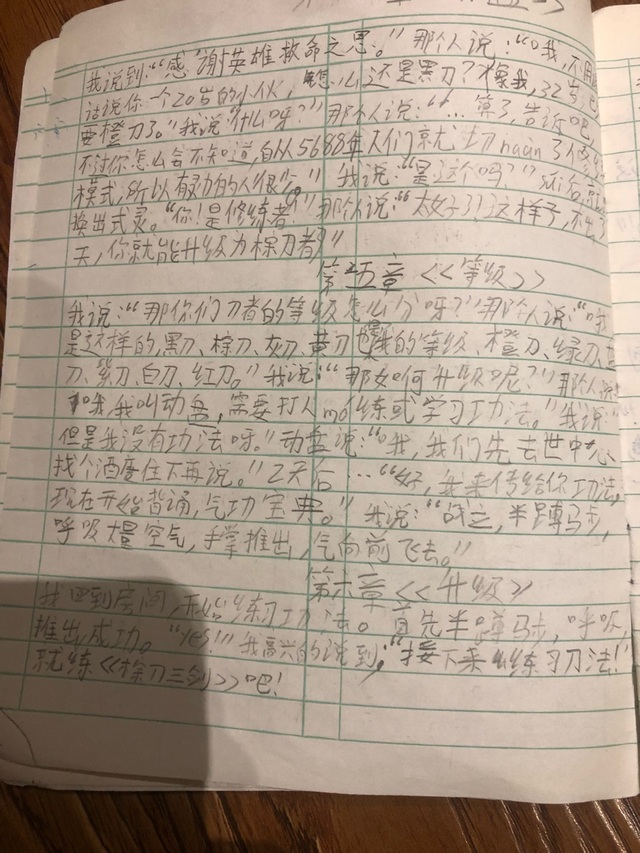 我说到:“感谢英雄救命之恩。”那个人说:“哦,不用
话说你一个20岁的小伙,怎么还是黑刀?像我,32岁
要橙刀了。”我说“什么呀?”那个人说:“…算了,告诉吧,
不过你怎么会不知道,自从5688年人们就
模式,所以有功的人很 。”我说:“是这个吗?”说话
换出式灵。“你!是修练者!”那个人说:“太好了!这样子,不出
天,你就能升级为棕刀者!”
第五章<<等级>>
我说:“那你们刀者的等级怎么分呀?”那个人说:“哦
是这样的,黑刀、棕刀、灰刀、黄刀 我的等级,橙刀、绿刀、
刀、紫刀、白刀、红刀。”我说:“那如何升级呢?”那个人说
“哦我叫动盘,需要打人 练或学习功法。”我说:
但是我没有功法呀。”动盘说:“哦,我们先去世中心
找个酒店住下再说。”2天后…“好,我来传给你功法,
现在开始背诵,气功宝典。”我说:“ 之,半蹲马步,
呼吸大量空气,手掌推出,气向前飞去。”
第六章<<升级>>
我回到房间,开始练习功法。首先半蹲马步,呼吸,
推出成功。“Yes!”我高兴的说到,“接下来 练习刀法!
就练<<棕刀三剑>>吧!